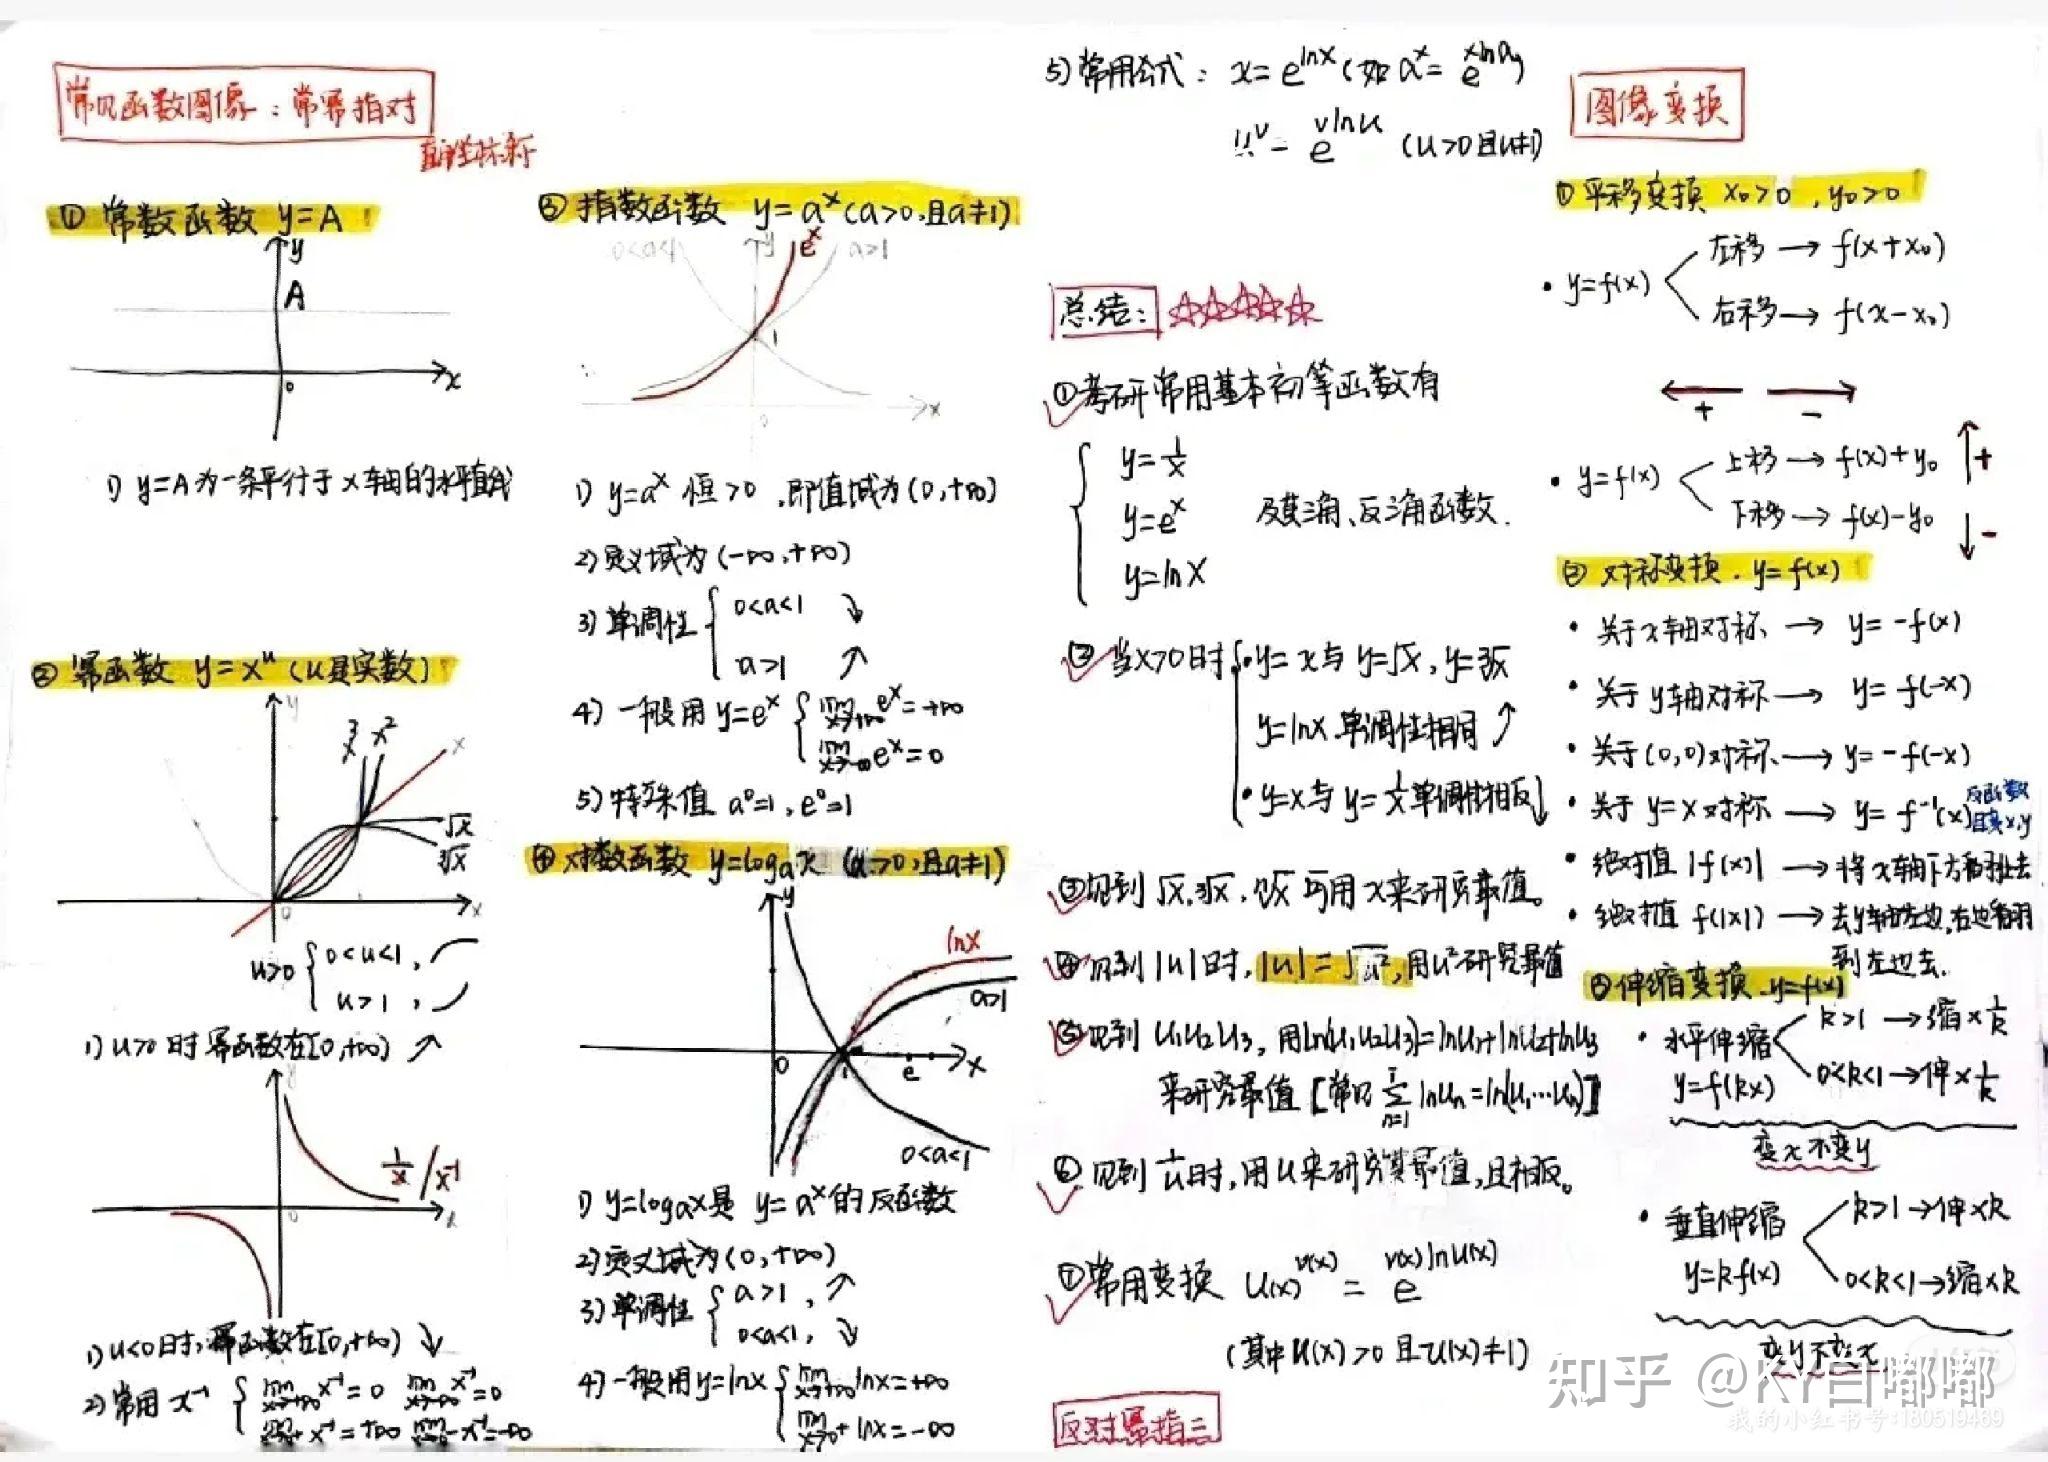 常见函数图像：常幂指对
直角坐标系
① 常数函数 y=A
y
A
0
x
1) y=A为一条平行于x轴的水平直线
② 幂函数 y=xᵘ (u是实数)
y
x³ x² x
√x
∛x
0
x
u>0 { 0<u<1,
u>1,
1) u>0时 幂函数在[0,+∞) ↗
y
1/x / x⁻¹
0
x
1) u<0时, 幂函数在[0,+∞) ↘
2) 常用 x⁻¹ { lim x→+∞ x⁻¹=0 lim x→-∞ x⁻¹=0
lim x→0⁺ x⁻¹=+∞ lim x→0⁻ x⁻¹=-∞
③ 指数函数 y=aˣ (a>0,且a≠1)
0<a<1 y eˣ a>1
1
0
x
1) y=aˣ 恒>0 ,即值域为(0,+∞)
2) 定义域为(-∞,+∞)
3) 单调性 { 0<a<1 ↘
a>1 ↗
4) 一般用 y=eˣ { lim x→+∞ eˣ=+∞
lim x→-∞ eˣ=0
5) 特殊值 a⁰=1, e⁰=1
④ 对数函数 y=logₐx (a>0,且a≠1)
y
lnx
a>1
0 1 e x
0<a<1
1) y=logₐx是 y=aˣ的反函数
2) 定义域为(0,+∞)
3) 单调性 { a>1, ↗
0<a<1, ↘
4) 一般用y=lnx { lim x→+∞ lnx=+∞
lim x→0⁺ lnx=-∞
5) 常用公式: x=e^lnx (如 aˣ=e^xlna)
uᵛ=e^vlnu (u>0且u≠1)
总结: ☆☆☆☆☆
① 考研常用基本初等函数有
y=1/x
y=eˣ 及其三角、反三角函数.
y=lnx
② 当x>0时 { • y=x与y=√x, y=∛x
y=lnx 单调性相同 ↗
• y=x与y=1/x单调性相反↓
③ 见到√x,∛x, ⁿ√x 可用x来研究最值。
④ 见到|u|时, |u|=√u², 用u²研究最值
⑤ 见到 u₁u₂u₃, 用ln(u₁u₂u₃)=lnu₁+lnu₂+lnu₃
来研究最值 [常见 Σ n=1 lnuₙ=ln(u₁…uₙ)]
⑥ 见到1/u时, 用u来研究其最值,且相反。
⑦ 常用变换 u(x)^v(x) = e^v(x)lnu(x)
(其中u(x)>0且u(x)≠1)
反对幂指三
图像变换
① 平移变换 x₀>0 , y₀>0
• y=f(x) 左移 → f(x+x₀)
右移 → f(x-x₀)
← + - →
• y=f(x) 上移 → f(x)+y₀ ↑+
下移 → f(x)-y₀ ↓-
② 对称变换. y=f(x)
• 关于x轴对称 → y=-f(x)
• 关于y轴对称 → y=f(-x)
• 关于(0,0)对称 → y=-f(-x)
• 关于y=x对称 → y=f⁻¹(x) 反函数
x,y
• 绝对值|f(x)| → 将x轴下方翻上去
• 绝对值 f(|x|) → 去y轴左边,右边翻
到左边去.
③ 伸缩变换. y=f(x)
• 水平伸缩 k>1 → 缩×1/k
y=f(kx) 0<k<1 → 伸×1/k
变x不变y
• 垂直伸缩 k>1 → 伸×k
y=kf(x) 0<k<1 → 缩×k
变y不变x
知乎 @KY自嘟嘟
我的小红书号:180519469